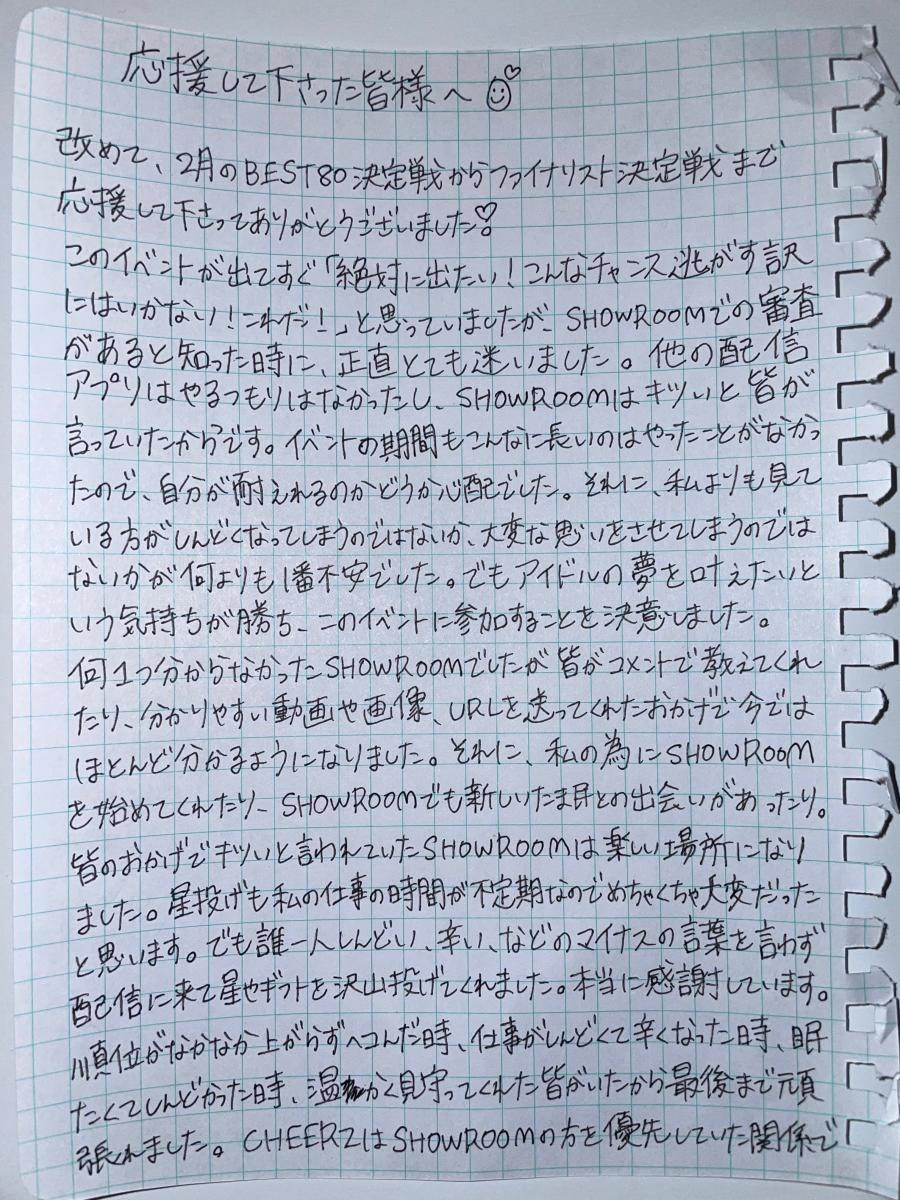 応援して下さった皆様へ
改めて、2月のBEST80決定戦からファイナリスト決定戦まで
応援して下さってありがとうございました♡
このイベントが出てすぐ「絶対に出たい！こんなチャンス逃がす訳
にはいかない！これだ！」と思っていましたが、SHOWROOMでの審査
があると知った時に、正直とても迷いました。他の配信
アプリはやるつもりはなかったし、SHOWROOMはキツいと皆が
言っていたからです。イベントの期間もこんなに長いのはやったことがなかっ
たので、自分が耐えれるのかどうか心配でした。それに、私よりも見て
いる方がしんどくなってしまうのではないか、大変な思いをさせてしまうのでは
ないかが何よりも1番不安でした。でもアイドルの夢を叶えたいと
いう気持ちが勝ち、このイベントに参加することを決意しました。
何1つ分からなかったSHOWROOMでしたが皆がコメントで教えてくれ
たり、分かりやすい動画や画像、URLを送ってくれたおかげで今では
ほとんど分かるようになりました。それに、私の為にSHOWROOM
を始めてくれたり、SHOWROOMでも新しいたま民との出会いがあったり。
皆のおかげでキツいと言われていたSHOWROOMは楽しい場所になり
ました。星投げも私の仕事の時間が不定期なのでめちゃくちゃ大変だった
と思います。でも誰一人しんどい、辛い、などのマイナスの言葉を言わず
配信に来て星やギフトを沢山投げてくれました。本当に感謝しています。
順位がなかなか上がらずヘコんだ時、仕事がしんどくて辛くなった時、眠
たくてしんどかった時、温かく見守ってくれた皆がいたから最後まで頑
張れました。CHEERZはSHOWROOMの方を優先していた関係で